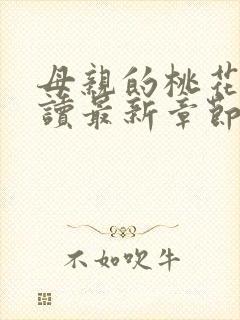 母親的桃花
讀最新章節
不如吹牛